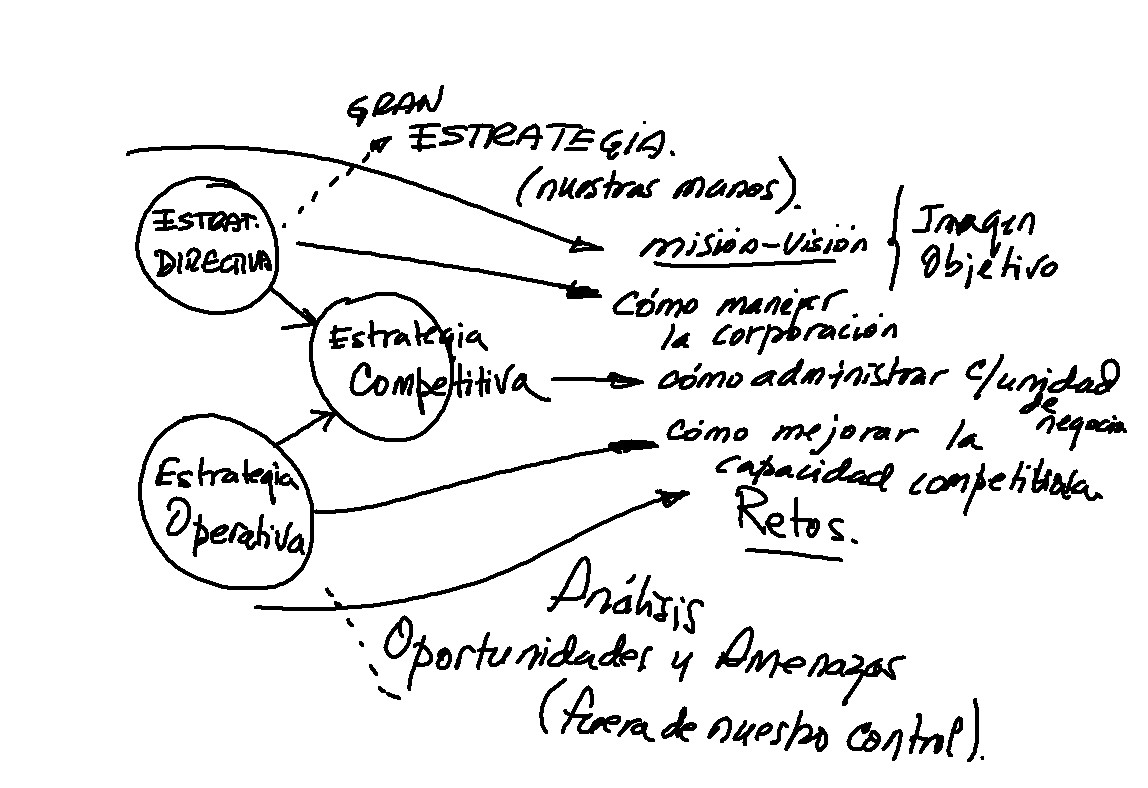 GRAN
ESTRATEGIA.
(nuestras manos).
ESTRAT.
DIRECTIVA
misión-Visión
Imagen
Objetivo
Cómo manejar
la corporación
Estrategia
Competitiva
cómo administrar c/unidad
de
negocio
cómo mejorar la
capacidad competitiva.
Estrategia
Operativa
Retos.
Análisis
Oportunidades y Amenazas
(fuera de nuestro control).